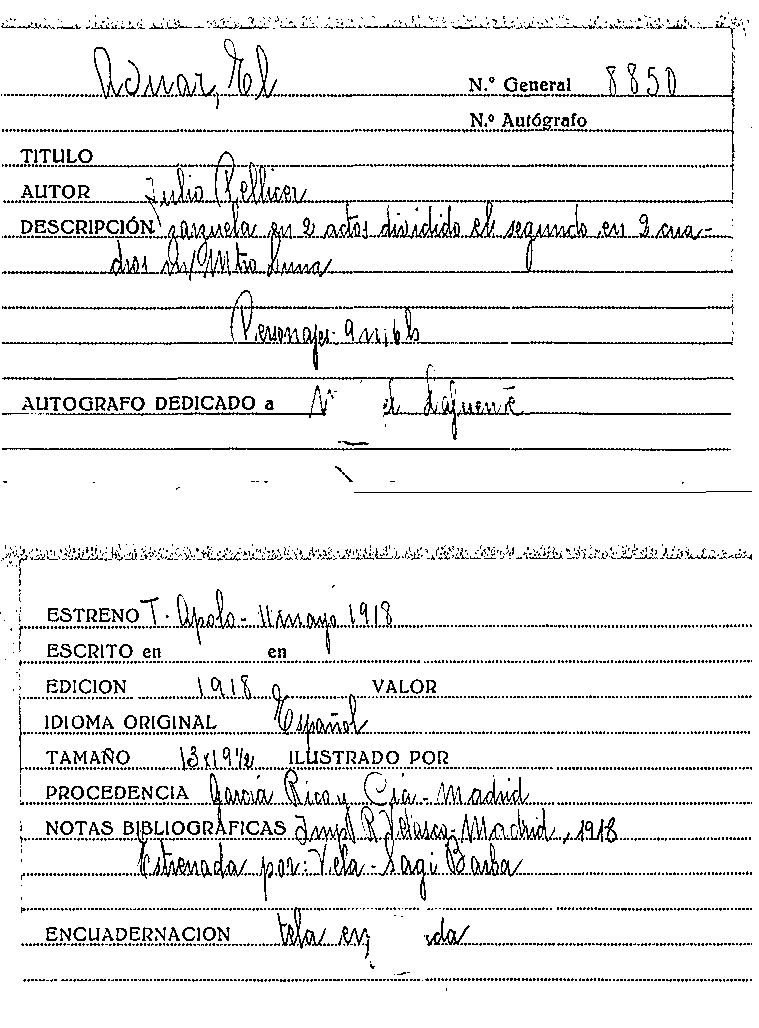 Aduar, El
N.º General 8850
N.º Autógrafo
TITULO
AUTOR Julio Pellicer
DESCRIPCIÓN zarzuela en 2 actos dividido el segundo en 2 cua-
dros De/Mtro Luna
Personajes- 9 n, 6 h
AUTOGRAFO DEDICADO a de Lafuente
ESTRENO T. Apolo - 11 mayo 1918
ESCRITO en en
EDICION 1918 VALOR
IDIOMA ORIGINAL Español
TAMAÑO 13x19½ ILUSTRADO POR
PROCEDENCIA García Rico y Cía - Madrid
NOTAS BIBLIOGRÁFICAS Impt R. Velasco - Madrid, 1918
Estrenada por: Vela - Sagi Barba
ENCUADERNACION tela